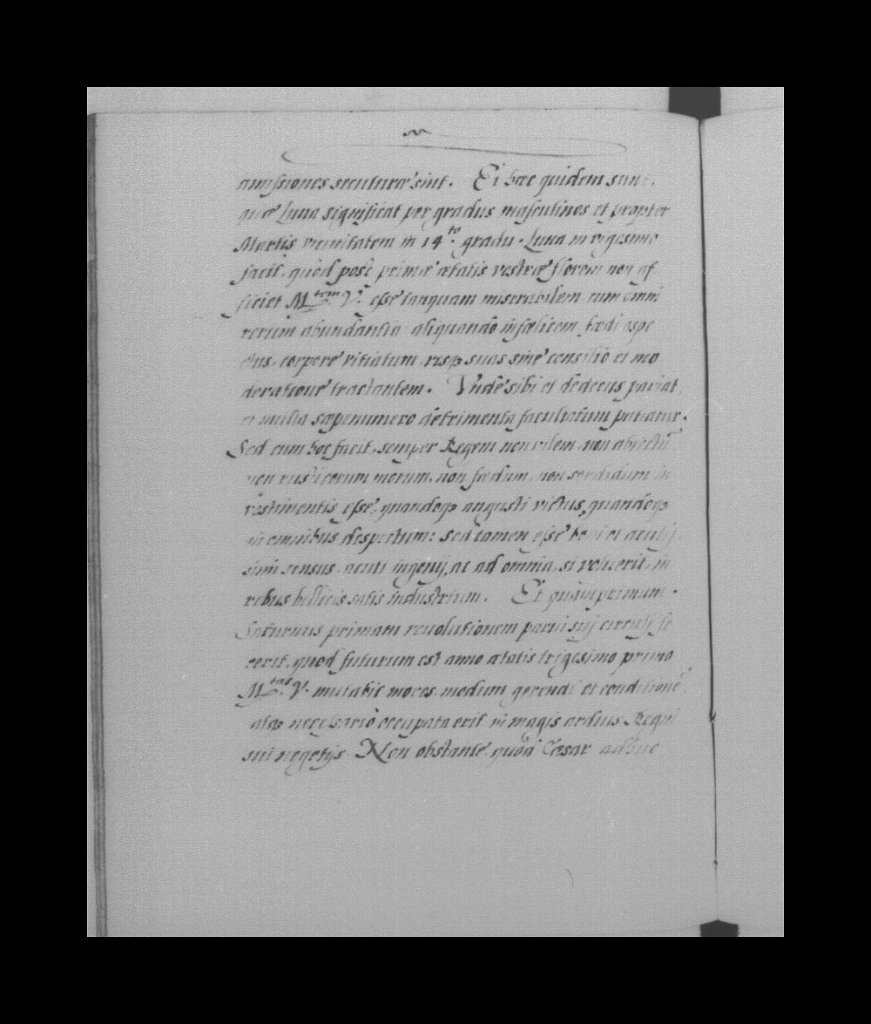 amissiones secuturæ sint. Et hæc quidem sunt
quæ Luna significat per gradus masculinos et propter
Martis vicinitatem in 14.to gradu. Luna in vigesimo
facit, quod post primæ ætatis vestræ florem non af
ficiet M.tem V. esse tanquam miserabilem, cum omni
rerum abundantia aliquando infælicem, fædi aspe
ctus, corpore vitiatum, resq3 suas sine consilio et mo
deratione tractantem. Vnde sibi et dedecus pariat
et multa sæpenumero detrimenta facultatum patiatur.
Sed cum hoc facit, semper Regem non vilem, non abiectū
non rusticorum morum, non fædum, non sordidum in
vestimentis esse, quandoq3 angusti victus, quandoq3
in omnibus despectum: sed tamen esse boni et acutis
simi sensus, acuti ingenij, ac ad omnia, si voluerit, in
rebus bellicis satis industrium. Et quamprimum
Saturnus primam reuolutionem parui sui circuli fe
cerit, quod futurum est anno ætatis trigesimo primo
M.tas V. mutabit mores, modum gerendi et conditionē
necessario occupata erit in magis arduis Regni
sui negotijs. Non obstante quod Cæsar adhuc